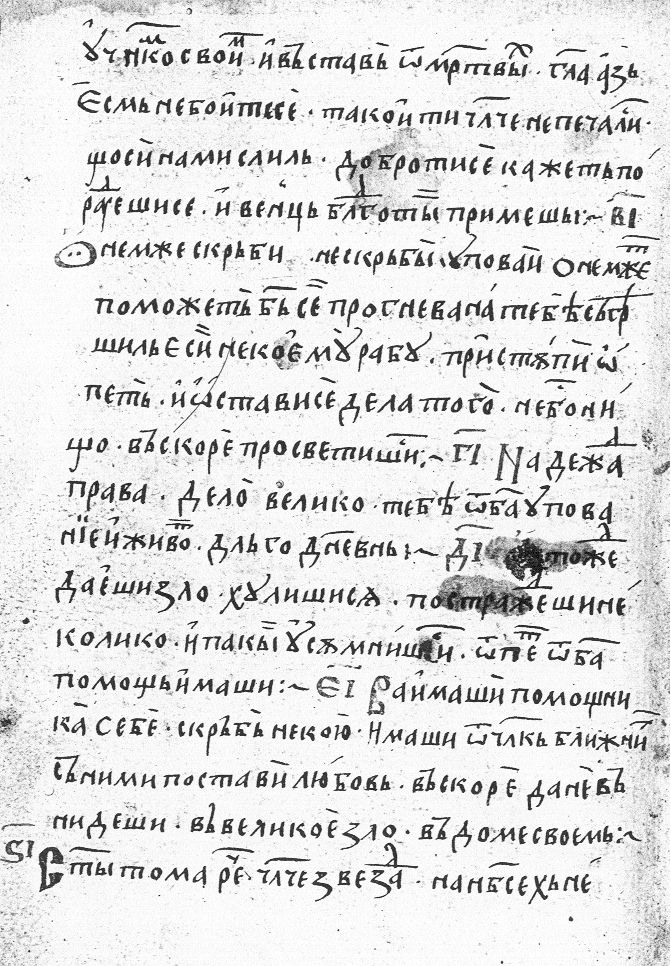 ꙋчн҃ко свои҃ . и въставъ ѿ мр҃твы . гл҃а азъ
Єсмь не боитесе . тако и ти чл҃че не печали .
що си намислиль . добро ти се кажеть по
ра҃еши се . и венць бл҃готы примешы :~ в҃і
Ѻ немже скрьби . не скрьбы ꙋповаи Ѻ немже
поможеть б҃ь се прогневана тебѣ съгр
шиль Єси некоемꙋ рабꙋ . пристѫпи ѡ
петь . и ѡстави се дела того . небо ни
що . въскоре просветиши :~ г҃і Надежа
права . дело велико тебѣ ѿ б҃а ꙋпова
ніе и живо . дльго дн҃евнь :~ д҃і тоже
даеши зло . хꙋлишисѧ . постражеши не
колико . и пакы ꙋсѧмнишіи . ѿпе ѿ б҃а
помощь имаши :~ є҃і Раи маши помощни
ка себе . скръбь некою . имаши ѿ чл҃кь ближни
съ ними постави любовь . въскоре да не въ
нидеши . въ великое зло . въ доме своемь :~
ѕ҃і Ст҃ы тома ре҃ чл҃че звеза . на нб҃се хь не